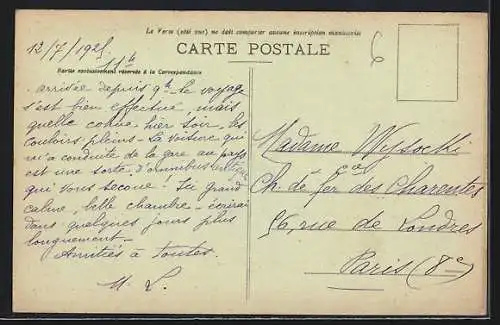 Le Verso (côté vue) ne doit comporter aucune inscription manuscrite
CARTE POSTALE
Partie exclusivement réservée à la Correspondance
12/7/1925
11h
6
arrivée depuis 9h le voyage
s'est bien effectué mais
quelle cohue hier soir les
couloirs pleins - La voiture qui
m'a conduite de la gare au pays
est une sorte d'omnibus antique
qui vous secoue. Ici grand
calme, belle chambre - écrirai
dans quelques jours plus
longuement -
Amitiés à toutes.
M. L.
Madame Wysocki
Cie
Ch. de fer des Charentes
56, rue de Londres
Paris (8e)